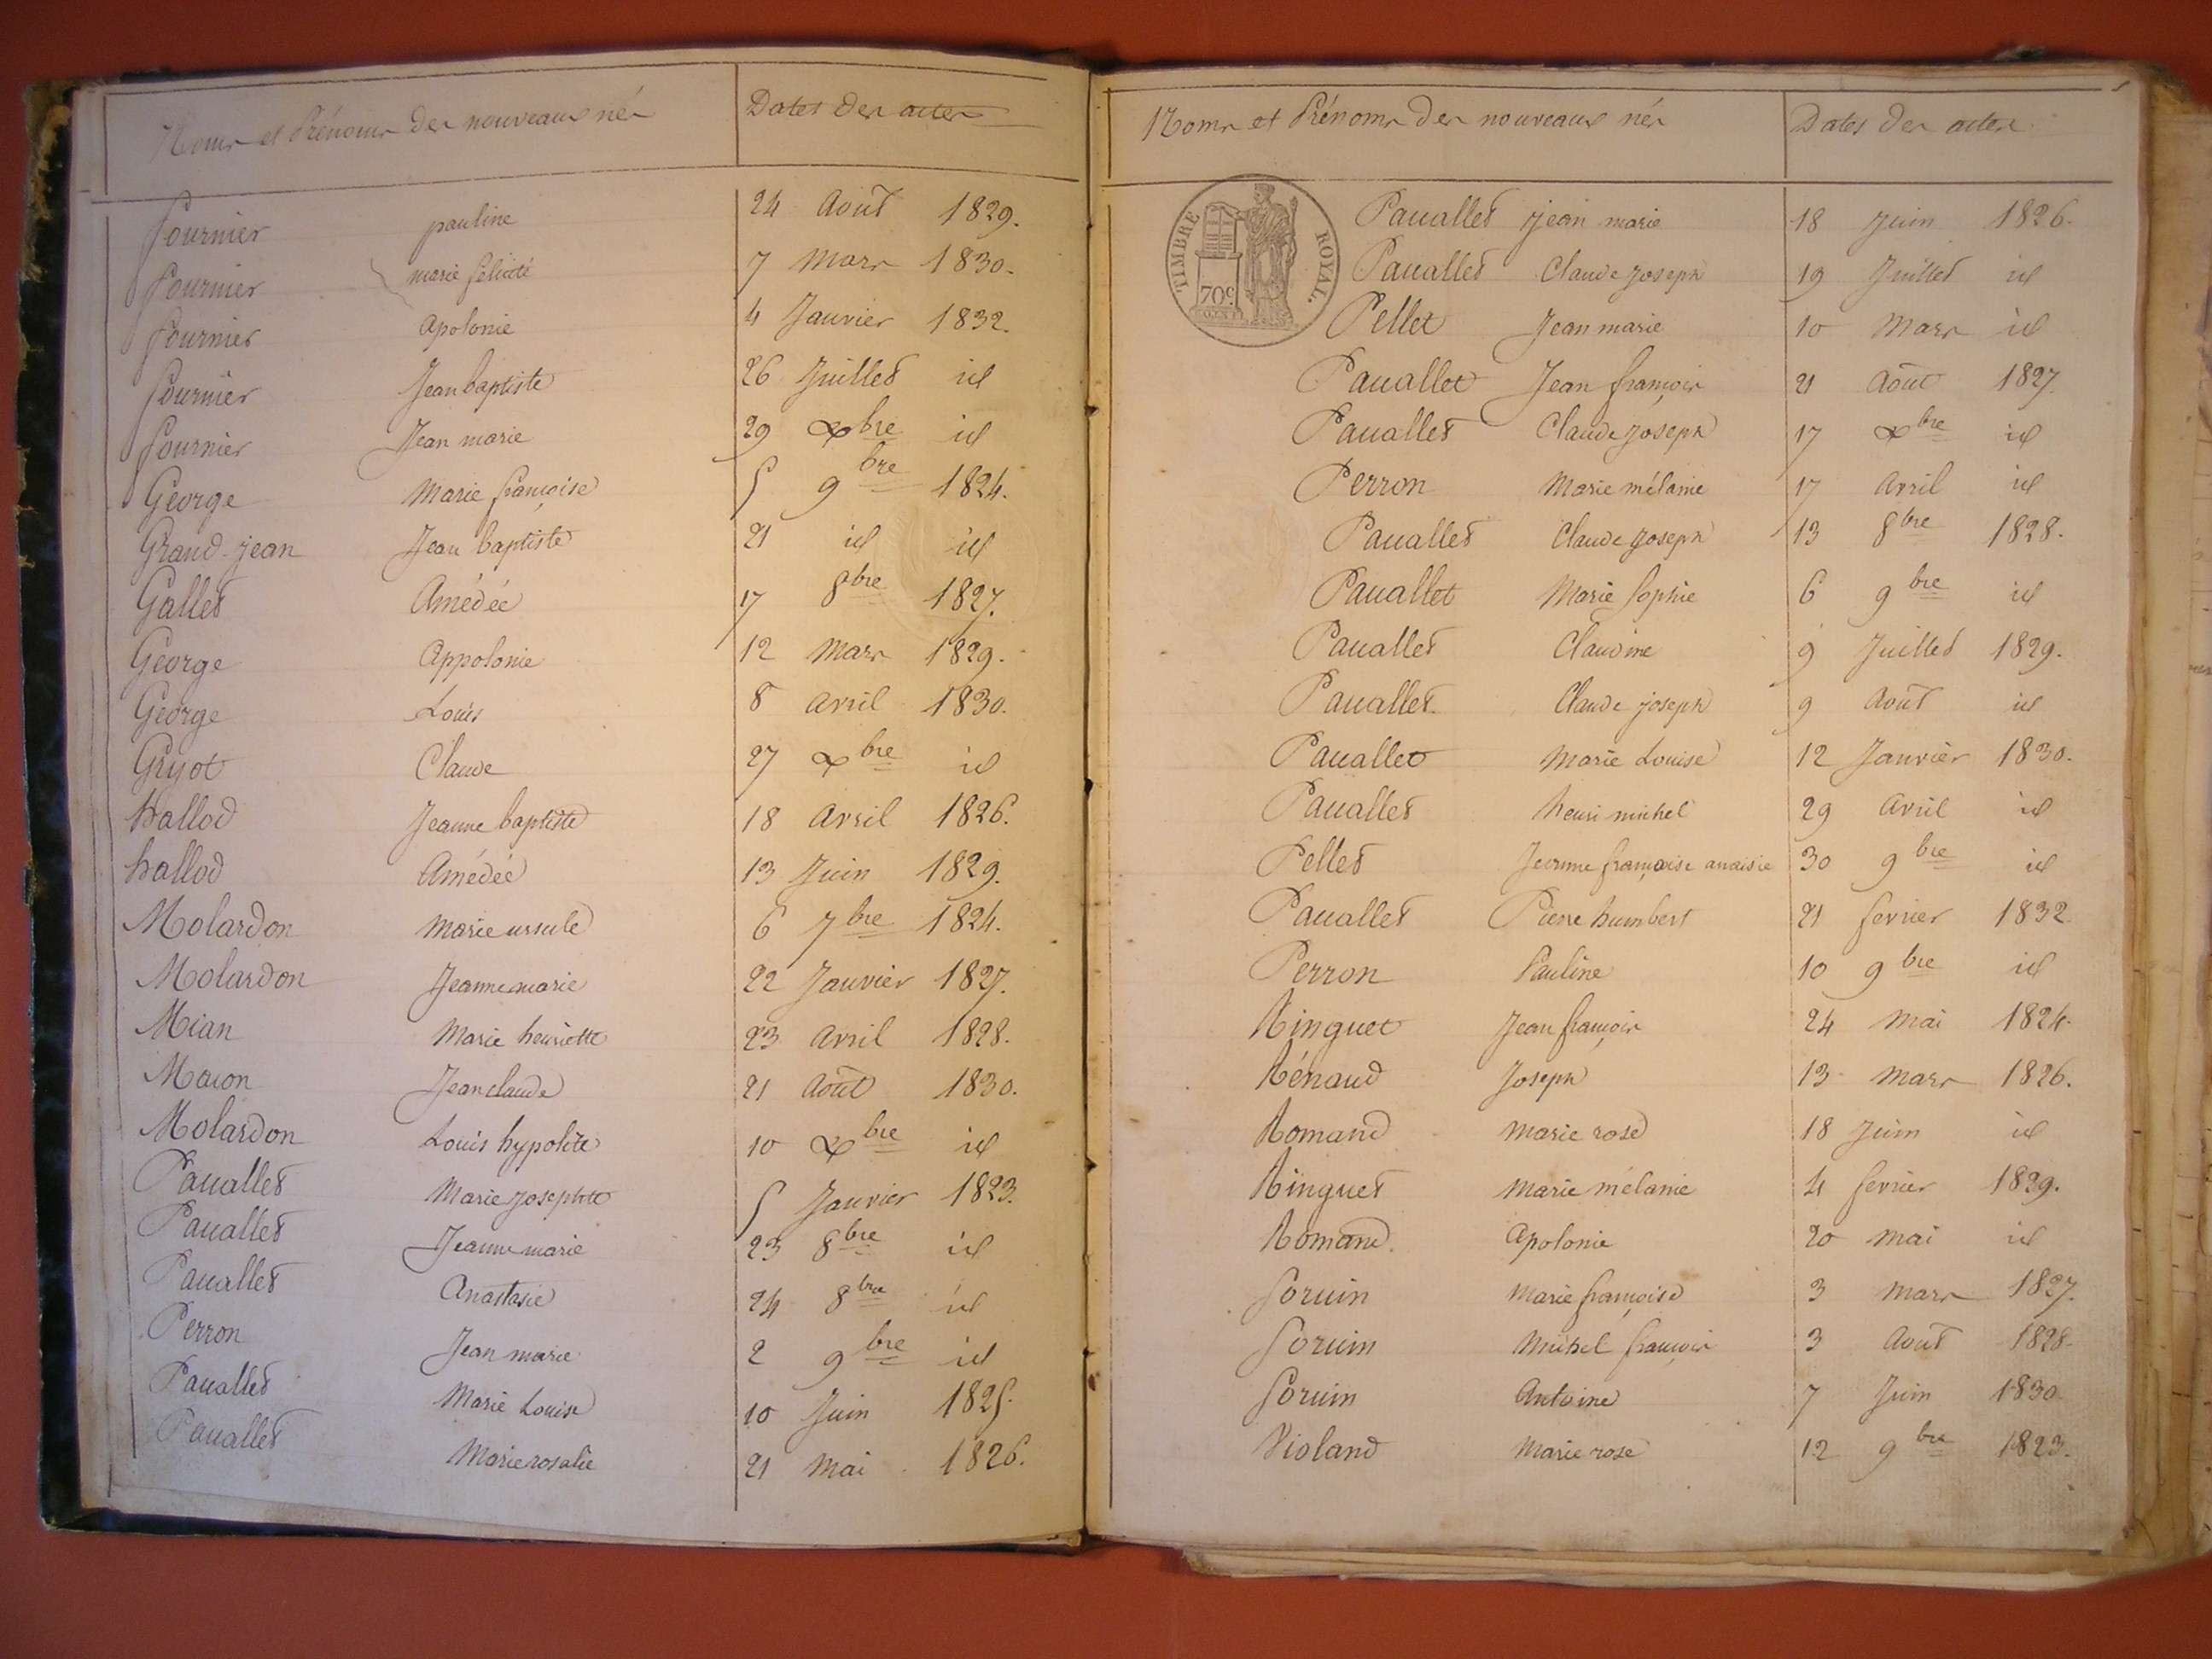 Noms et Prénoms des nouveaux nés Dates des actes
Fournier pauline 24 Août 1829.
Fournier marie félicité 7 Mars 1830.
Fournier Apolonie 4 Janvier 1832.
Fournier Jean baptiste 26 Juillet id
Fournier Jean marie 29 Xbre id
George Marie françoise 5 9bre 1824.
Grand-jean Jean baptiste 21 id id
Gallet Amédée 17 8bre 1827.
George Appolonie 12 Mars 1829.
George Louis 8 Avril 1830.
Gryot Claude 27 Xbre id
hallod Jeanne baptiste 18 Avril 1826.
hallod Amédée 13 Juin 1829.
Molardon Marie ursule 6 7bre 1824.
Molardon Jeanne marie 22 Janvier 1827.
Mian Marie henriette 23 Avril 1828.
Macon Jean claude 21 Août 1830.
Molardon Louis hypolite 10 Xbre id
Paualles Marie Josephte 5 Janvier 1823.
Paualles Jeanne marie 23 8bre id
Paualles Anastasie 24 8bre id
Perron Jean marie 2 9bre id
Paualles Marie Louise 10 Juin 1825.
Paualles Marie rosalie 21 Mai 1826.
Noms et Prénoms des nouveaux nés Dates des actes
TIMBRE ROYAL.
70c
Pauallet jean marie 18 Juin 1826.
Pauallet Claude Joseph 19 Juillet id
Pellet Jean marie 10 Mars id
Pauallet Jean françois 21 Août 1827.
Pauallet Claude Joseph 17 Xbre id
Perron Marie mélanie 17 Avril id
Pauallet Claude Joseph 13 8bre 1828.
Pauallet Marie Sophie 6 9bre id
Pauallet Claudine 9 Juillet 1829.
Pauallet Claude joseph 9 Août id
Pauallet Marie Louise 12 Janvier 1830.
Pauallet henri michel 29 Avril id
Pellet Jeanne françoise anaisie 30 9bre id
Pauallet Pierre humbert 21 fevrier 1832
Perron Pauline 10 9bre id
Ringuet Jean françois 24 Mai 1824.
Rénaud Joseph 13 Mars 1826.
Romand Marie rose 18 Juin id
Ringuet Marie mélanie 4 fevrier 1829.
Romand. Apolonie 20 Mai id
Soruin Marie françoise 3 Mars 1827.
Soruin Michel françois 3 Août 1828.
Soruin Antoine 7 Juin 1830.
Violand Marie rose 12 9bre 1823.